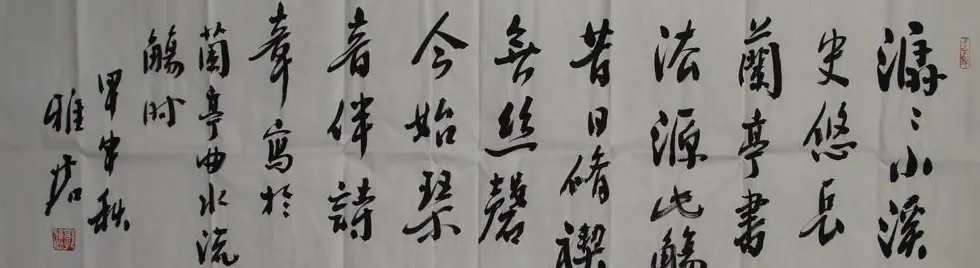 潺〻小溪
史悠長
蘭亭書
法源此觴
昔日脩禊
無絲磬
今始琴
音伴詩
章寫於
蘭亭曲水流
觴时
甲午秋
雅